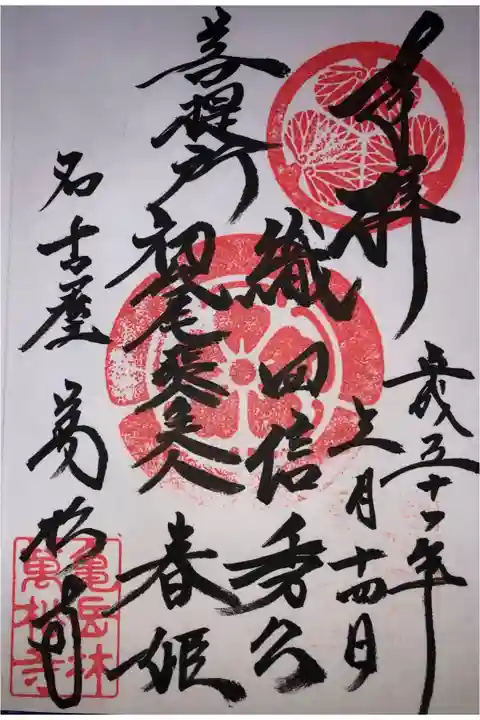 奉拝
平成三十一年
上月十四日
織田信秀公
菩提所
初代尾張夫人 春姫
名古屋 萬松寺
亀岳林
萬松寺